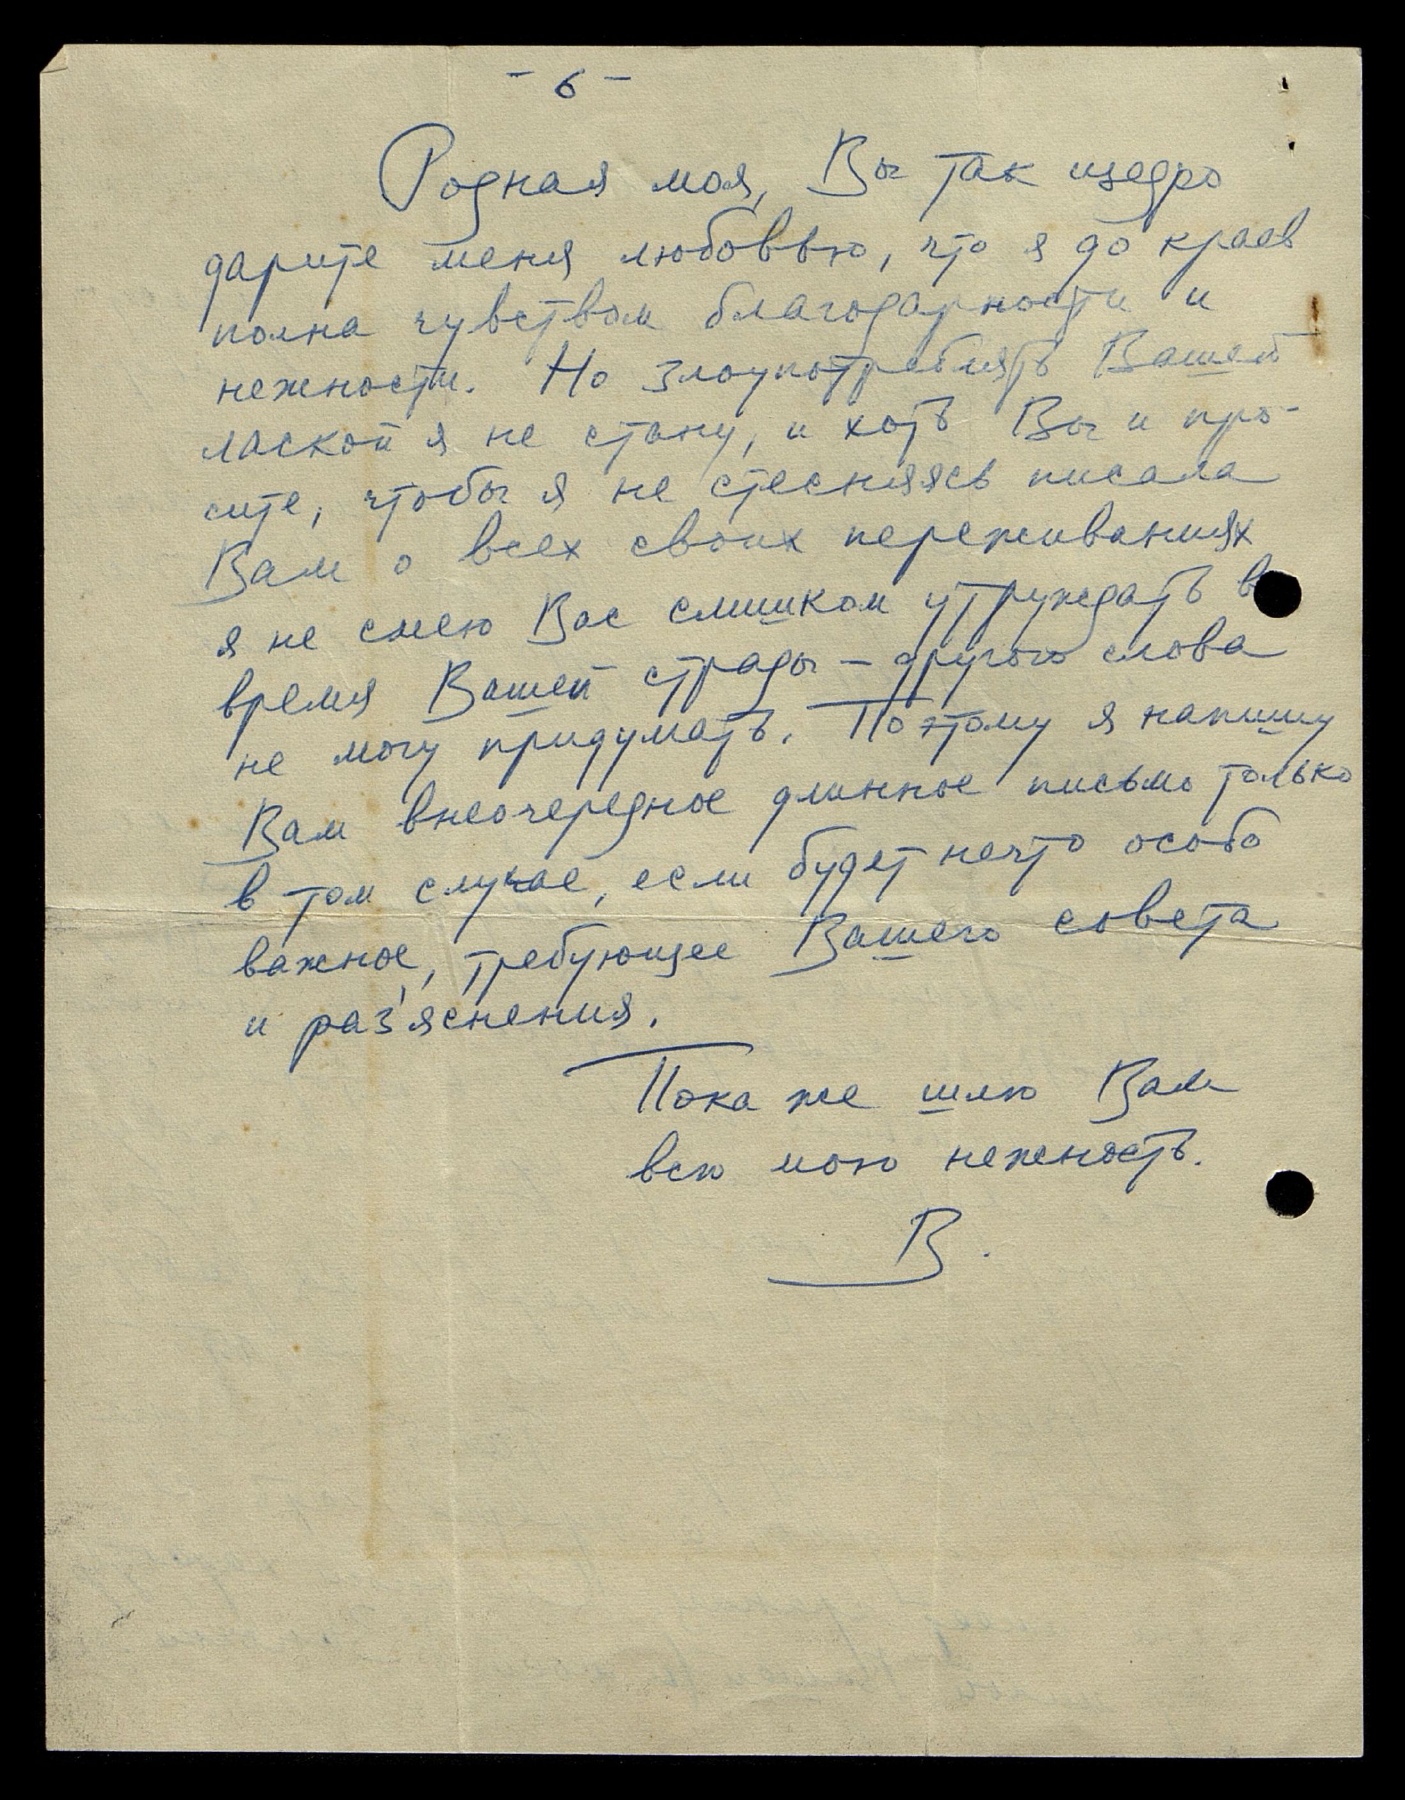 - 6 -
Родная моя, Вы так щедро
дарите меня любоввю, что я до краев
полна чувством благодарности и
нежности. Но злоупотреблять Вашей
лаской я не стану, и хоть Вы и про-
сите, чтобы я не стесняясь писала
Вам о всех своих переживаниях
я не смею Вас слишком утруждать в
время Вашей страды – другого слова
не могу придумать. Поэтому я напишу
Вам внеочередное длинное письмо только
в том случае, если будет нечто особо
важное, требующее Вашего совета
и раз'яснения.
Пока же шлю Вам
всю мою нежность.
В.